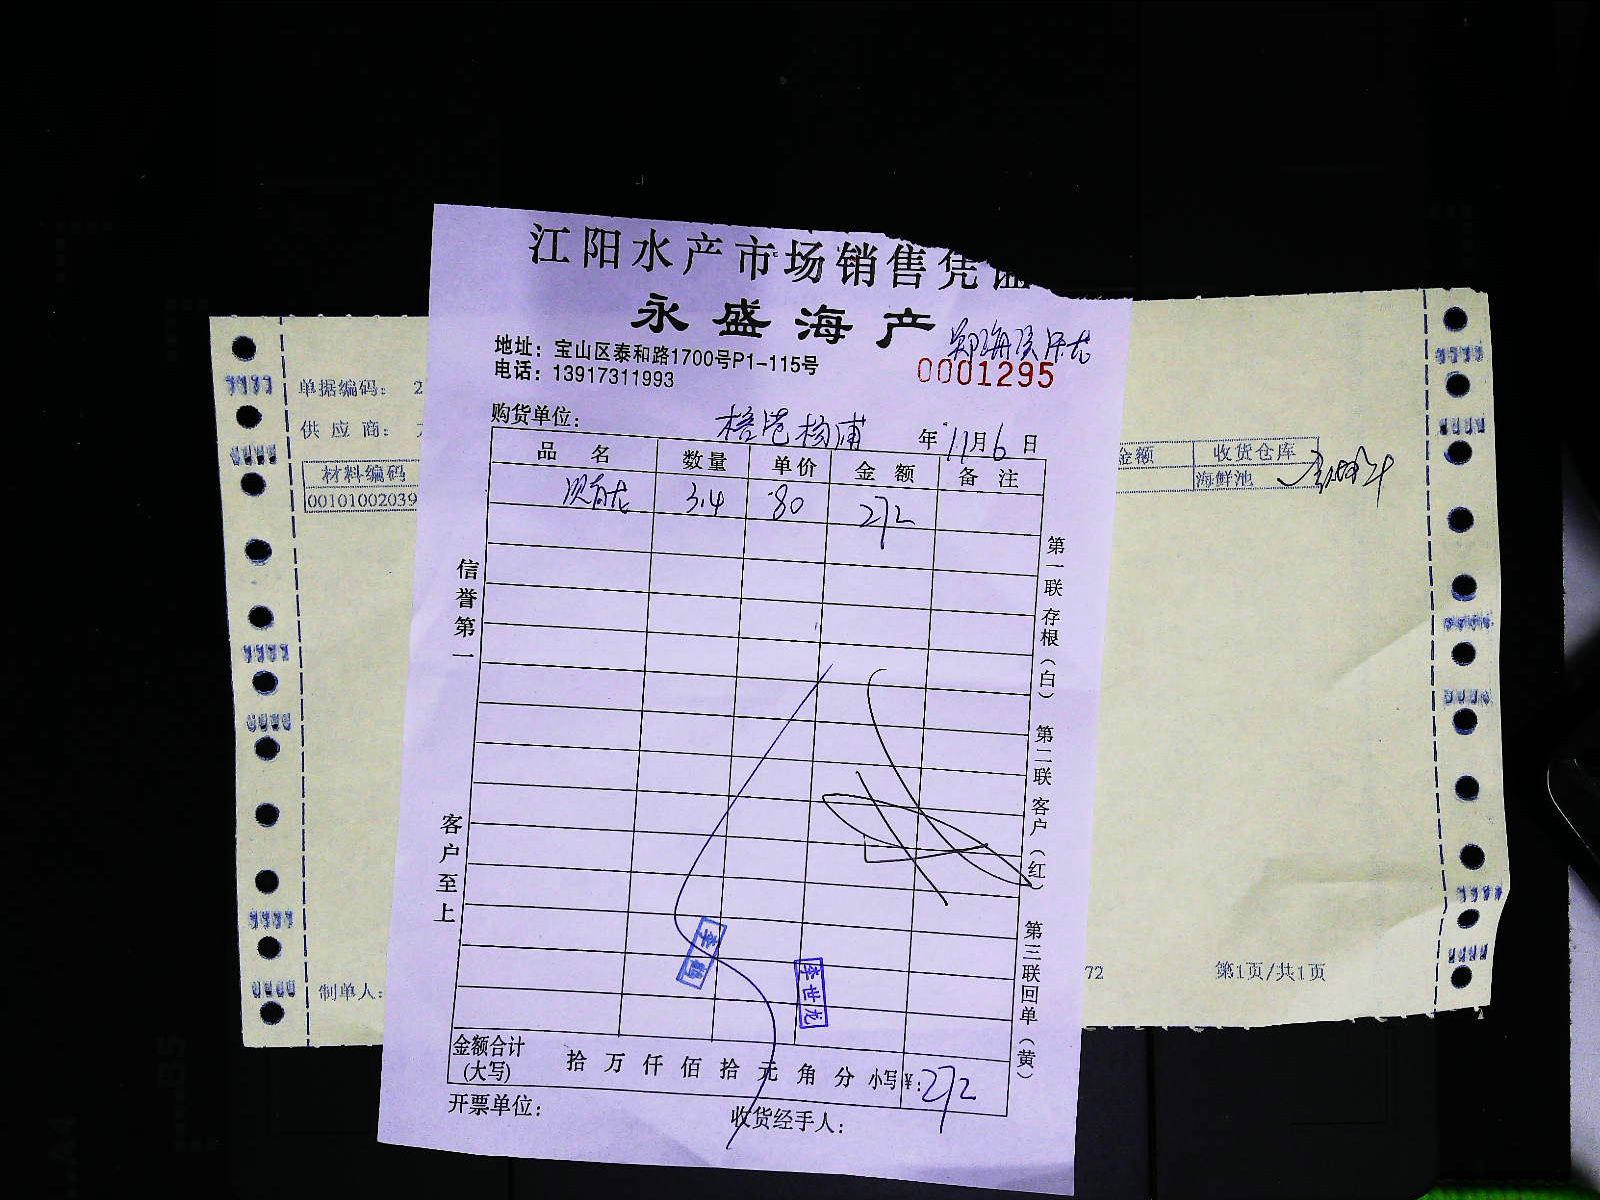 江阳水产市场销售凭证
永盛海产
地址：宝山区泰和路1700号P1-115号
电话：13917311993
0001295
购货单位： 杨浦 年 11月6日
品名 数量 单价 金额 备注
3.4 80 272
信誉第一
客户至上
第一联存根（白）
第二联客户（红）
第三联回单（黄）
李世龙
金额合计（大写） 拾万仟佰拾元角分 小写¥：272
开票单位： 收货经手人：
单据编码： 2
供应商：
材料编码
00101002039
金额 收货仓库
海鲜池
制单人：
72 第1页/共1页